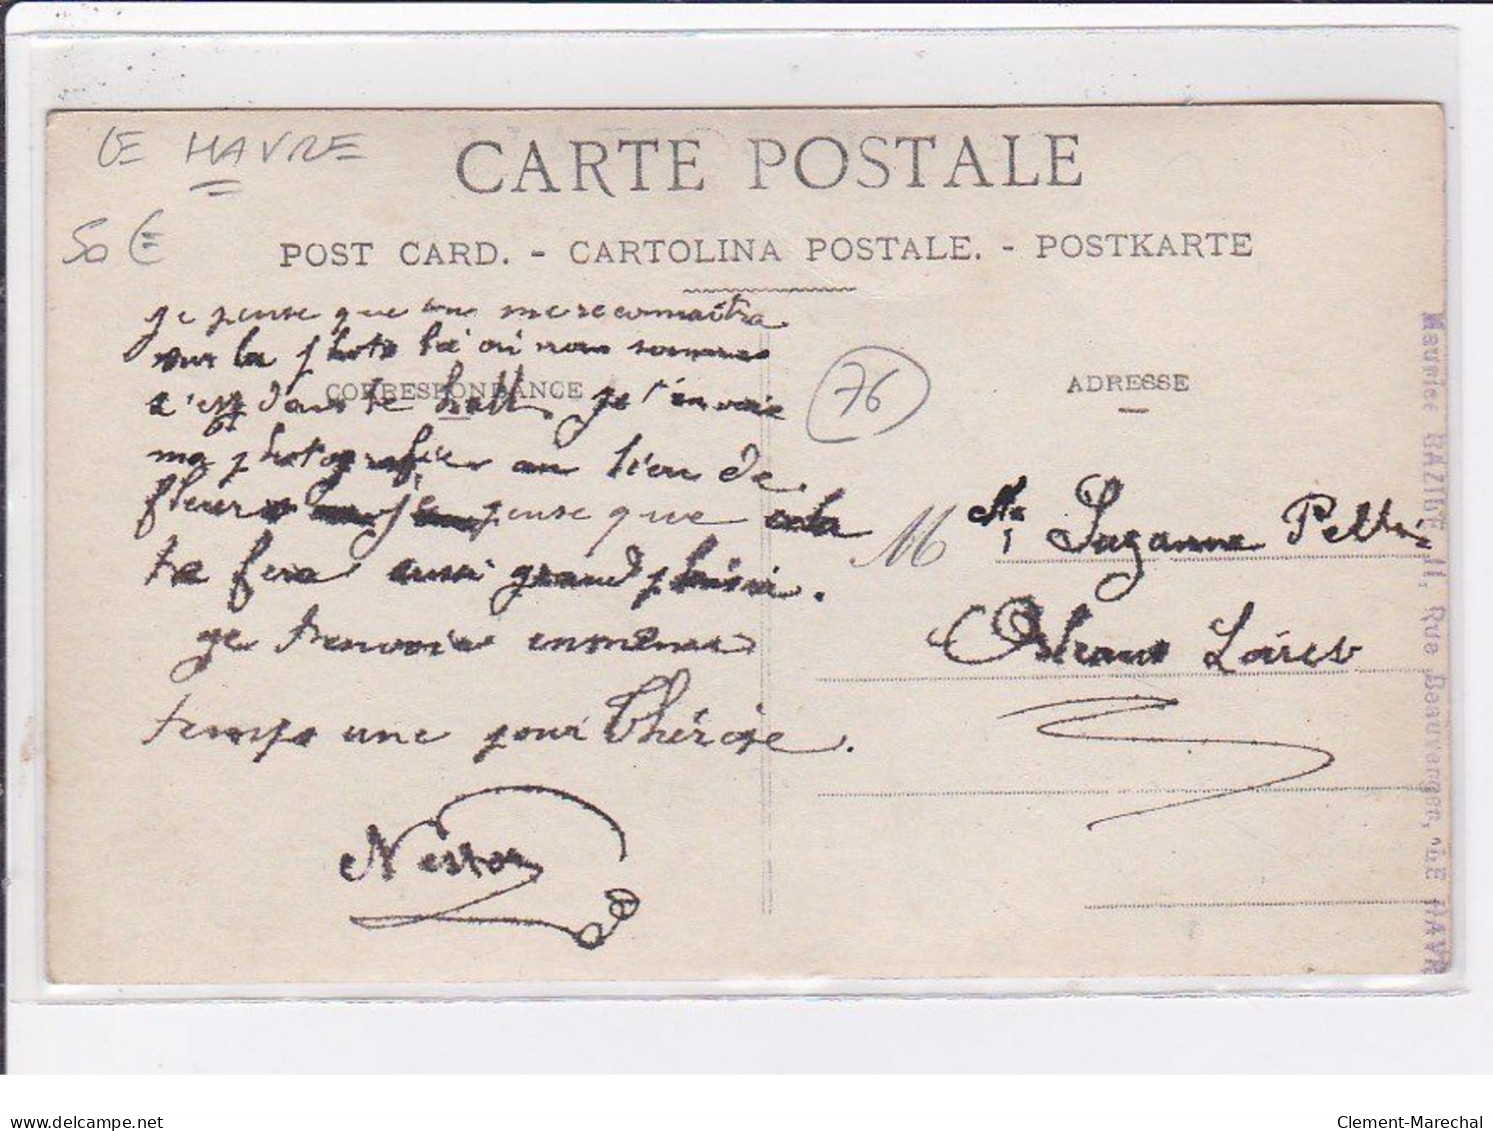 LE HAVRE
50 €
CARTE POSTALE
POST CARD. - CARTOLINA POSTALE. - POSTKARTE
je pense que me reconnaîtra
sur la photo là où nous sommes
c'est dans le hall je t'envoie
CORRESPONDANCE
ma photografie au lieu de
fleurs pense que cela
te fera aussi grand plaisir.
je t'renvoie en même
temps une pour Thérèse.
Nestor
76
ADRESSE
M Mlle Suzanne
Orléans Loiret
Maurice 11, Rue Beauverger, LE HAVR
delcampe.net
Clement-Marechal